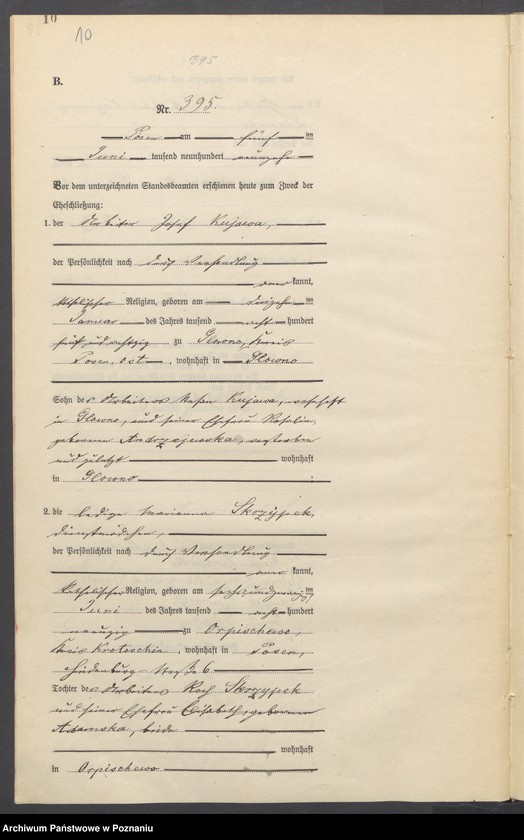 10
10
395
B.
Nr. 395.
Posen am fünf ten
Juni tausend neunhundert neunzehn
Vor dem unterzeichneten Standesbeamten erschienen heute zum Zweck der
Eheschließung:
1. der Arbeiter Josef Kujawa,
der Persönlichkeit nach durch Verhandlung
aner kannt,
katholischer Religion, geboren am dreizehn ten
Januar des Jahres tausend acht hundert
fünf und achtzig zu Glowno, Kreis
Posen, Ost, wohnhaft in Glowno
Sohn des Arbeiters Kujawa, wohnhaft
in Glowno, und seiner Ehefrau Rosalie,
geborenen Andrzejewska, verstorben
und zuletzt wohnhaft
in Glowno
2. die ledige Marianna Skrzypek,
Dienstmädchen,
der Persönlichkeit nach durch Verhandlung
aner kannt,
katholischer Religion, geboren am sechsundzwanzig ten
Juni des Jahres tausend acht hundert
neunzig zu Orpischewo,
Kreis Krotoschin, wohnhaft in Posen,
Hindenburg-Straße 6
Tochter des Arbeiters Roch Skrzypek
und seiner Ehefrau Elisabeth, geborenen
Adamska, beide
wohnhaft
in Orpischewo
Archiwum Państwowe w Poznaniu